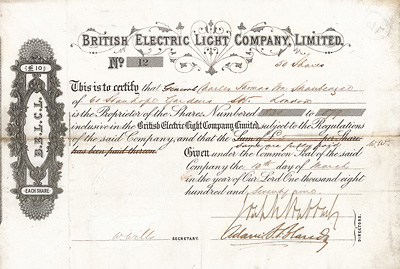 BRITISH ELECTRIC LIGHT COMPANY, LIMITED.
No 12
50 Shares
£10
This is to certify that Charles Thomas
of 61 Stanhope Gardens London
is the Proprietor of the Share, Numbered to
inclusive in the British Electric Light Company, Limited, subject to the Regulations
of the said Company, and that the Sum of per Share
has been paid thereon. same are fully paid
Given under the Common Seal of the said
Company the 9th day of March
in the year of Our Lord One thousand eight
hundred and
B.E.L.C.L.
EACH SHARE
SECRETARY.
DIRECTORS.